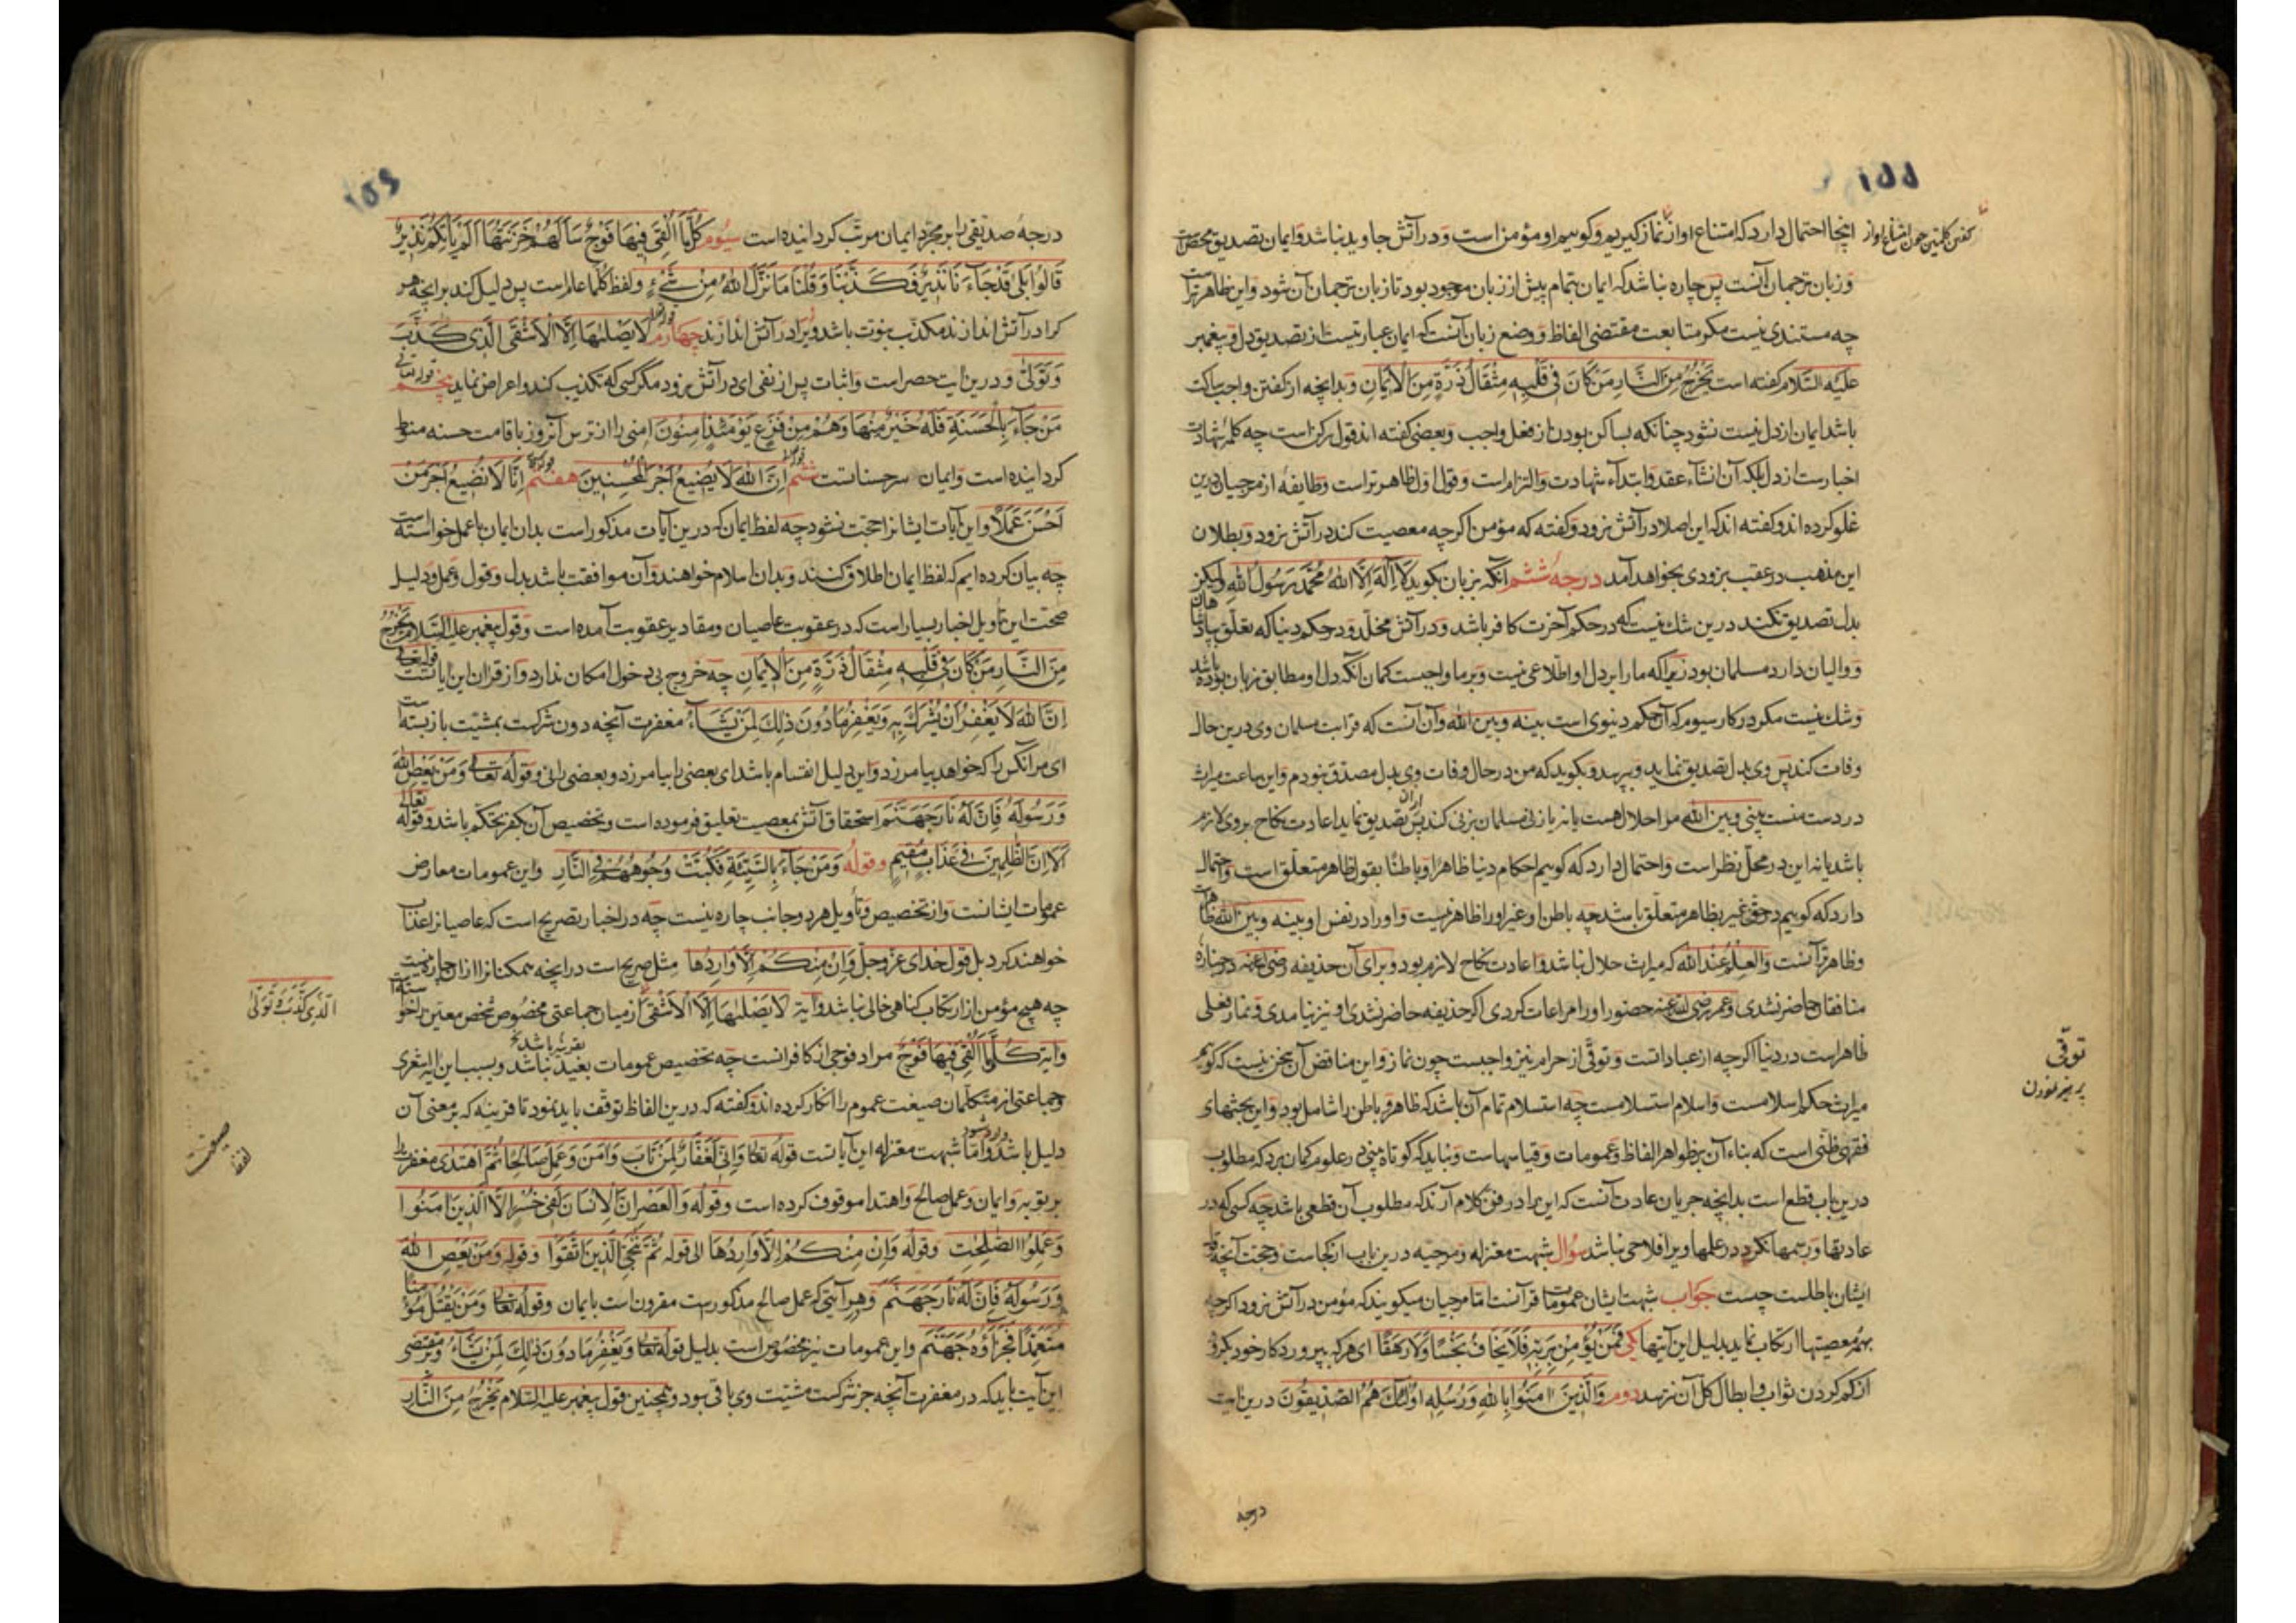 ١٥٥
اینجا احتمال دارد که امتناع او از نماز گیریم و گوییم او مؤمن است و در آتش جاوید نباشد و ایمان تصدیق محض است
و زبان ترجمان آنست پس چاره نباشد که ایمان بتمام پیش از زبان موجود بود تا زبان ترجمان آن شود و این ظاهرتر است
چه مستندی نیست مکر متابعت مقتضی الفاظ و وضع زبان آنست که ایمان عبارتیست از تصدیق دل و پیغمبر
علیه السّلام کفته است یخرج من النّار من کان فی قلبه مثقال ذرّة من الایمان و بدانچه از کفتن واجب ساکت
باشد ایمان از دل نیست نشود چنانکه بساکن بودن از فعل واجب و بعضی کفته اند قول رکن است چه کلمۀ شهادت
اخبار نیست از دل بلکه آن انشاء عقد و ابتداء شهادت و التزام است و قول اوّل ظاهرتر است و طایفۀ از مرجیان درین
غلو کرده اند و کفته اند که این اصلا در آتش نرود و کفته که مؤمن اکرچه معصیت کند در آتش نرود و بطلان
این مذهب در عقب بزودی بخواهد آمد درجۀ ششم آنکه بزبان بکوید لا اله الّا الله محمّد رسول الله ولیکن
بدل تصدیق نکند درین شک نیست که در حکم آخرت کافر باشد و در آتش مخلّد و در حکم دنیا که تعلّق بپادشاهان
و والیان دارد مسلمان بود زیراکه ما را بر دل او اطّلاعی نیست و بر ما واجبست کمان آنکه دل او مطابق زبان بوده باشد
و شک نیست مکر در کار سیوم که آن حکم دنیوی است بینه و بین الله و آن آنست که قرابت مسلمان وی درین حال
وفات کند پس وی بدل تصدیق نماید و بپرسد و بکوید که من در حال وفات وی بدل مصدّق نبودم و این ساعت میراث
در دست منست بینی و بین الله مرا حلال هست یا نه یا زنی مسلمان بزنی کند پس از آن تصدیق نماید اعادت نکاح بر وی لازم
باشد یا نه این در محلّ نظر است و احتمال دارد که کوییم احکام دنیا ظاهرا و باطنا بقول ظاهر متعلّق است و احتمال
دارد که کوییم در حقّ غیر بظاهر متعلّق باشد چه باطن او غیر او را ظاهر نیست و او را در نفس او بینه و بین الله ظاهر است
و ظاهرتر آنست و العلم عند الله که میراث حلال نباشد و اعادت نکاح لازم بود و برای آن حذیفه رضی الله عنه در جنازۀ
منافقان حاضر نشدی و عمر رضی الله عنه حضور او را مراعات کردی اکر حذیفه حاضر نشدی او نیز نیامدی و نماز فعلی
ظاهر است در دنیا اکرچه از عبادات است و توقّی از حرام نیز واجبست چون نماز و این مناقض آن سخن نیست که کوییم
میراث حکم اسلامست و اسلام استسلامست چه استسلام تمام آن باشد که ظاهر و باطن را شامل بود و این بحثهای
فقهی ظنّی است که بناء آن بر ظواهر الفاظ و عمومات و قیاسهاست و نباید که کوتاه بینی در علوم کمان برد که مطلوب
درین باب قطع است بدانچه جریان عادت آنست که این را در فنّ کلام آرند که مطلوب آن قطعی باشد چه کسی که در
عادتها و رسمها نکرد در علمها ویرا فلاحی نباشد سؤال شبهت معتزله و مرجیه درین باب از کجاست و حجّت آنچه قول
ایشان باطلست چیست جواب شبهت ایشان عمومات قرآنست امّا مرجیان میکویند که مؤمن در آتش نرود اکرچه
بهمه معصیتها ارتکاب نماید بدلیل این آیتها یکی فمن یؤمن بربّه فلا یخاف بخسا ولا رهقا ای هرکه بپروردکار خود بکرود
از کم کردن ثواب و ابطال کل آن نترسد دوم والّذین امنوا بالله ورسله اولئک هم الصّدیقون درین ایت
توقّی
پرهیز نمودن
درجه
درجۀ صدیقی را بر مجرّد ایمان مرتّب کردانیده است سیوم کلّما القی فیها فوج سالهم خزنتها الم یاتکم نذیر
قالوا بلی قد جاءنا نذیر فکذّبنا وقلنا ما نزّل الله من شیء ولفظ کلّما عام است پس دلیل کند بر آنچه هر
کرا در آتش اندازند مکذّب نبوّت باشد و ویرا در آتش اندازند چهارم لا یصلیها الّا الاشقی الّذی کذّب
وتولّی و درین ایت حصر است و اثبات پس از نفی ای در آتش نرود مکر کسی که تکذیب کند و اعراض نماید پنجم قوله تعالی
من جاء بالحسنة فله خیر منها وهم من فزع یومئذ امنون امنی را از ترس آنروز باقامت حسنه منوط
کردانیده است و ایمان سر حسناتست ششم انّ الله لا یضیع اجر المحسنین هفتم انّا لا نضیع اجر من
احسن عملا و این آیات ایشانرا حجّت نشود چه لفظ ایمان که درین آیات مذکور است بدان ایمان با عمل خواسته است
چه بیان کرده ایم که لفظ ایمان اطلاق کنند و بدان اسلام خواهند و آن موافقت باشد بدل و قول و عمل و دلیل
صحّت این تأویل اخبار بسیار است که در عقوبت عاصیان و مقادیر عقوبت آمده است و قول پیغمبر علیه السّلام یخرج
من النّار من کان فی قلبه مثقال ذرّة من الایمان چه خروج بی دخول امکان ندارد و از قران این ایاتست قوله تعالی
انّ الله لا یغفر ان یشرک به ویغفر ما دون ذلک لمن یشاء مغفرت آنچه دون شرکست بمشیّت باز بسته است
ای مر آنکس را که خواهد بیامرزد و این دلیل انقسام باشد ای بعضی را بیامرزد و بعضی را نی و قوله تعالی ومن یعص الله
ورسوله فانّ له نار جهنّم استحقاق آتش بمعصیت تعلیق فرموده است و تخصیص آن بکفر تحکّم باشد و قوله تعالی
الا انّ الظّلمین فی عذاب مقیم وقوله ومن جاء بالسّیّئة فکبّت وجوههم فی النّار و این عمومات معارض
عمومات ایشانست و از تخصیص و تأویل هر دو جانب چاره نیست چه در اخبار تصریح است که عاصیانرا عذاب
خواهند کرد بل قول خدای عزّ وجلّ وان منکم الّا واردها مثل صریح است در آنچه همکنانرا از آن چاره نیست
چه هیچ مؤمن از ارتکاب کناهی خالی نباشد و آیة لا یصلیها الّا الاشقی از میان جماعتی مخصوص شخص معیّن را خواسته است
و آیة کلّما القی فیها فوج مراد فوجی از کافرانست چه تخصیص عمومات بعید نباشد و بسبب این ایه اشعری
و جماعتی از متکلّمان صیغت عموم را انکار کرده اند و کفته که درین الفاظ توقّف باید نمود تا قرینه که بر معنی آن
دلیل باشد وارد شود و امّا شبهت معتزله این آیاتست قوله تعالی وانّی لغفّار لمن تاب وامن وعمل صالحا ثمّ اهتدی مغفرت را
بر توبه و ایمان و عمل صالح و اهتدا موقوف کرده است وقوله والعصر انّ الانسان لفی خسر الّا الّذین امنوا
وعملوا الصّلحت وقوله وان منکم الّا واردها الی قوله ثمّ ننجّی الّذین اتّقوا وقوله ومن یعص الله
ورسوله فانّ له نار جهنّم و هر آیتی که عمل صالح مذکورست مقرون است بایمان وقوله تعالی ومن یقتل مؤمنا
متعمّدا فجزاؤه جهنّم و این عمومات نیز مخصوص است بدلیل قوله تعالی ویغفر ما دون ذلک لمن یشاء و مقتضی
این آیت باید که در مغفرت آنچه جز شرکست مشیّت وی باقی بود و همچنین قول پیغمبر علیه السّلام یخرج من النّار
الّذی کذّب وتولّی
صیغت
لفظ